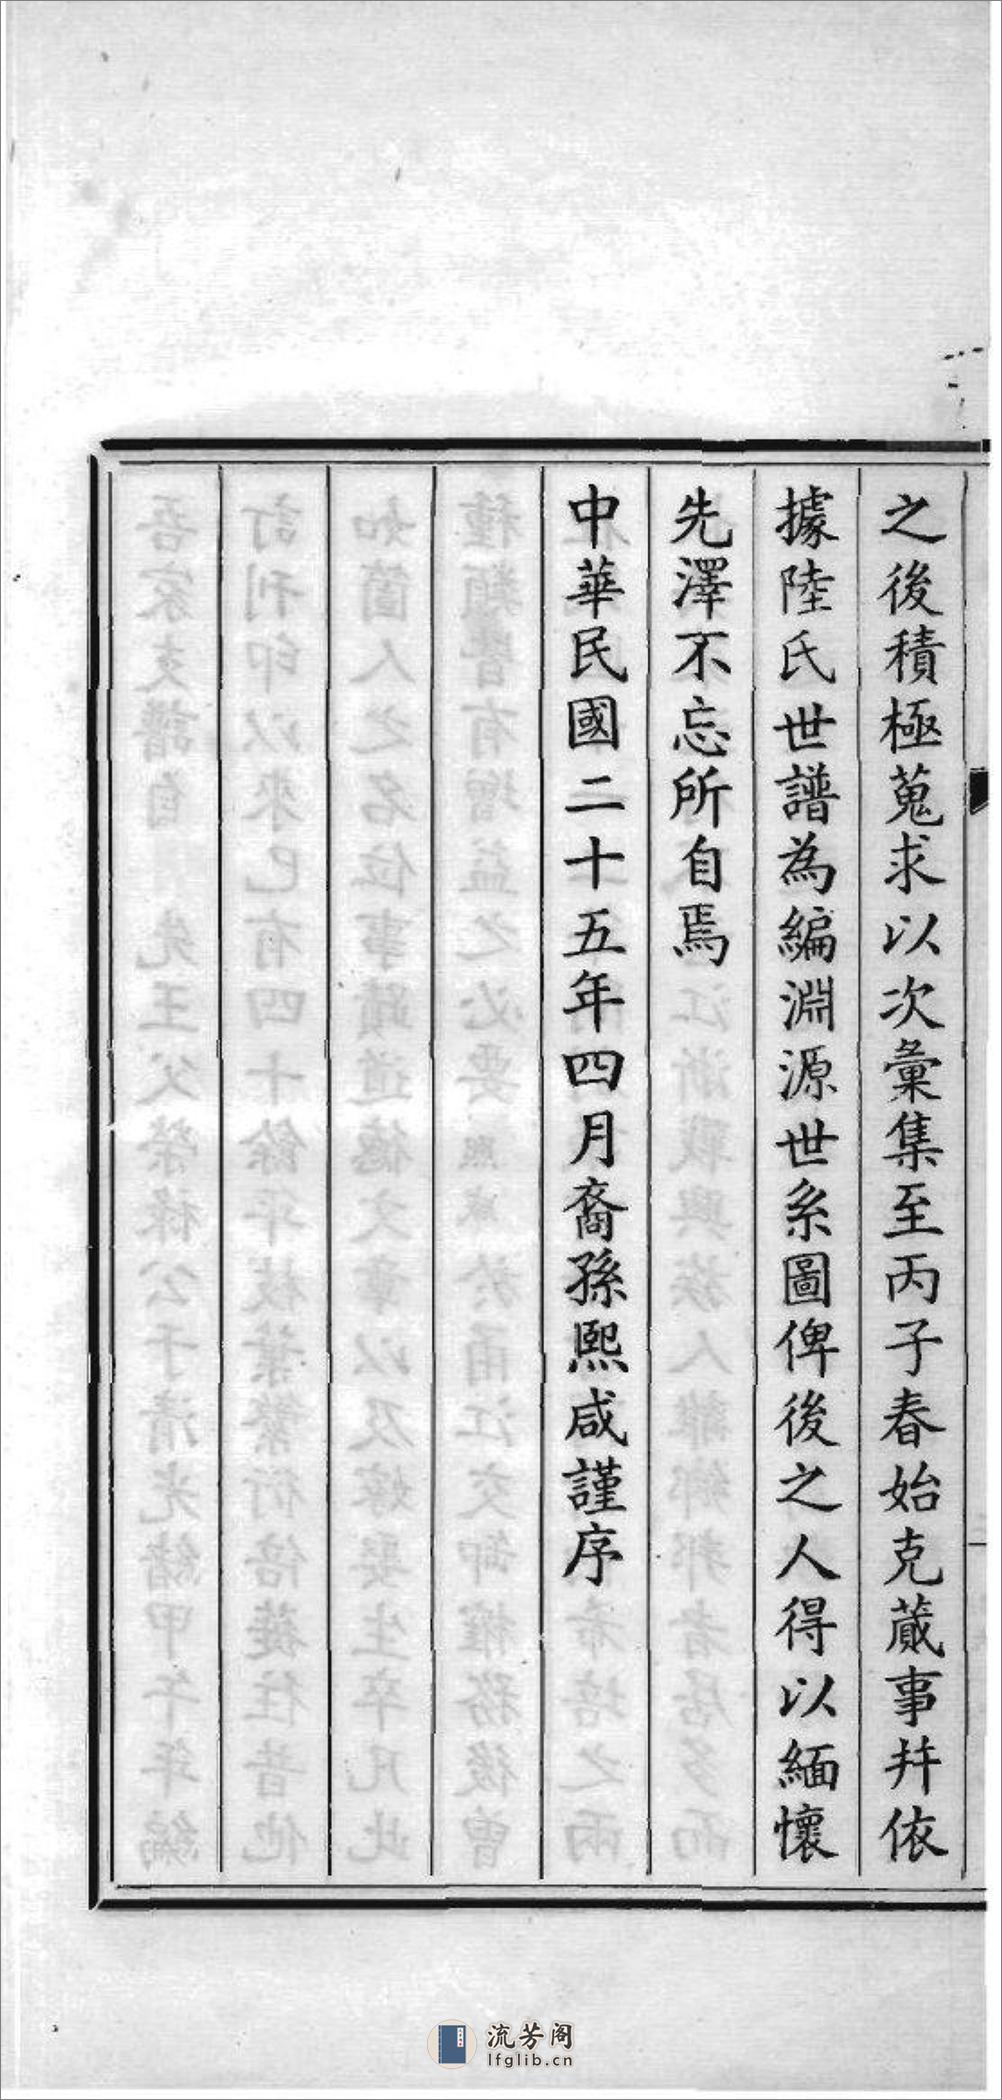 之後積極蒐求以次彙集至丙子春始克蕆事幷依
據陸氏世譜為編淵源世系圖俾後之人得以緬懷
先澤不忘所自焉
中華民國二十五年四月裔孫熙咸謹序
流芳阁
lfglib.cn